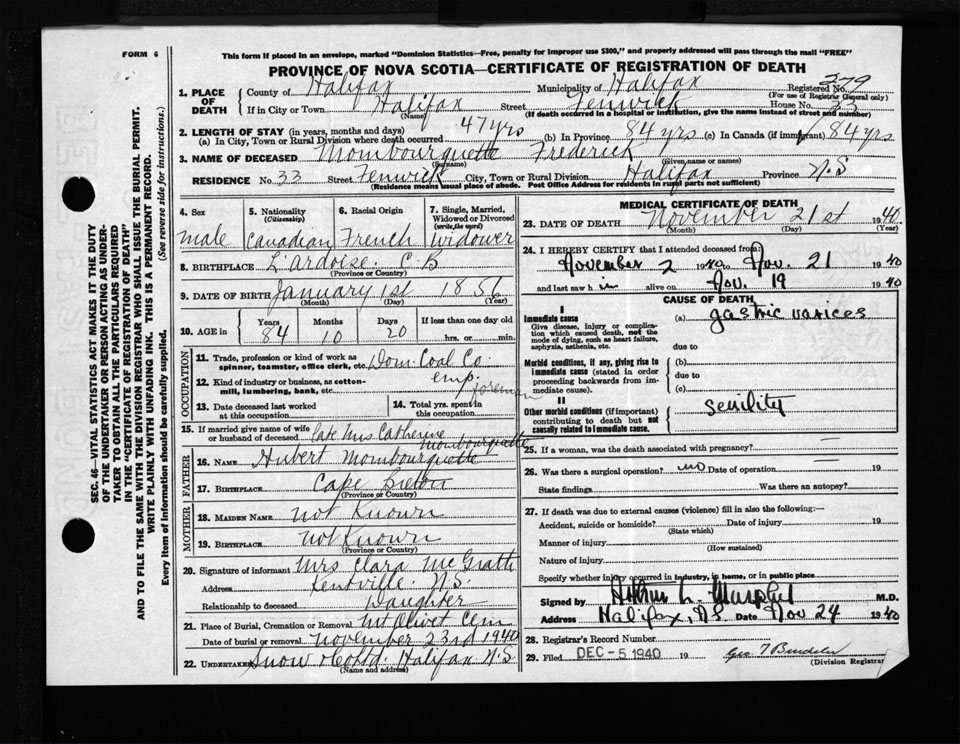 FORM 6
This form if placed in an envelope, marked "Dominion Statistics—Free, penalty for improper use $300," and properly addressed will pass through the mail "FREE"
PROVINCE OF NOVA SCOTIA—CERTIFICATE OF REGISTRATION OF DEATH
Registered No. 279
(For use of Registrar General only)
1. PLACE OF DEATH
County of Halifax Municipality of Halifax
If in City or Town Halifax Street Fenwick House No. 33
(Name) (If death occurred in a hospital or institution, give the name instead of street and number)
2. LENGTH OF STAY (in years, months and days)
(a) In City, Town or Rural Division where death occurred 47 yrs (b) In Province 84 yrs (c) In Canada (if immigrant) 84 yrs
3. NAME OF DECEASED Mombourquette Frederick
(Surname) (Given name or names)
RESIDENCE No. 33 Street Fenwick City, Town or Rural Division Halifax Province N.S
(Residence means usual place of abode. Post Office Address for residents in rural parts not sufficient)
4. Sex
male
5. Nationality
(Citizenship)
Canadian
6. Racial Origin
French
7. Single, Married, Widowed or Divorced
(write the word)
Widower
8. BIRTHPLACE L'Ardoise. C.B
(Province or Country)
9. DATE OF BIRTH January 1st 1856
(Month) (Day) (Year)
10. AGE in Years Months Days If less than one day old
84 10 20 hrs. or min.
OCCUPATION
11. Trade, profession or kind of work as spinner, teamster, office clerk, etc. Dom. Coal Co.
12. Kind of industry or business, as cotton-mill, lumbering, bank, etc. emp. foreman
13. Date deceased last worked at this occupation
14. Total yrs. spent in this occupation
15. If married give name of wife or husband of deceased late Mrs Catherine Mombourquette
FATHER
16. NAME Hubert Mombourquette
17. BIRTHPLACE Cape Breton
(Province or Country)
MOTHER
18. MAIDEN NAME not Known
19. BIRTHPLACE not Known
(Province or Country)
20. Signature of informant Mrs Clara McGrath
Address Kentville. N.S.
Relationship to deceased Daughter
21. Place of Burial, Cremation or Removal Mt Olivet Cem
Date of burial or removal November 23rd 1940
22. UNDERTAKER Snow & Co Ltd. Halifax N.S
(Name and address)
MEDICAL CERTIFICATE OF DEATH
23. DATE OF DEATH November 21st 1940
(Month) (Day) (Year)
24. I HEREBY CERTIFY that I attended deceased from
November 2 1940 to Nov. 21 1940
and last saw h im alive on Nov. 19 1940
CAUSE OF DEATH
I
Immediate cause
Give disease, injury or complication which caused death, not the mode of dying, such as heart failure, asphyxia, asthenia, etc.
(a) gastric varices
due to
Morbid conditions, if any, giving rise to immediate cause (stated in order proceeding backwards from immediate cause).
(b)
due to
(c)
II
Other morbid conditions (if important) contributing to death but not causally related to immediate cause.
Senility
25. If a woman, was the death associated with pregnancy? —
26. Was there a surgical operation? no Date of operation — 19
State findings Was there an autopsy? —
27. If death was due to external causes (violence) fill in also the following:—
Accident, suicide or homicide? Date of injury 19
(State which)
Manner of injury
(How sustained)
Nature of injury
Specify whether injury occurred in industry, in home, or in public place
Signed by Arthur L. Murphy M.D.
Address Halifax, N.S. Date Nov 24 1940
28. Registrar's Record Number
29. Filed DEC -5 1940 19
(Division Registrar)
SEC. 46—VITAL STATISTICS ACT MAKES IT THE DUTY
OF THE UNDERTAKER OR PERSON ACTING AS UNDER-
TAKER TO OBTAIN ALL THE PARTICULARS REQUIRED
IN THE "CERTIFICATE OF REGISTRATION OF DEATH"
AND TO FILE THE SAME WITH THE DIVISION REGISTRAR WHO SHALL ISSUE THE BURIAL PERMIT.
WRITE PLAINLY WITH UNFADING INK. THIS IS A PERMANENT RECORD.
Every item of information should be carefully supplied. (See reverse side for instructions.)